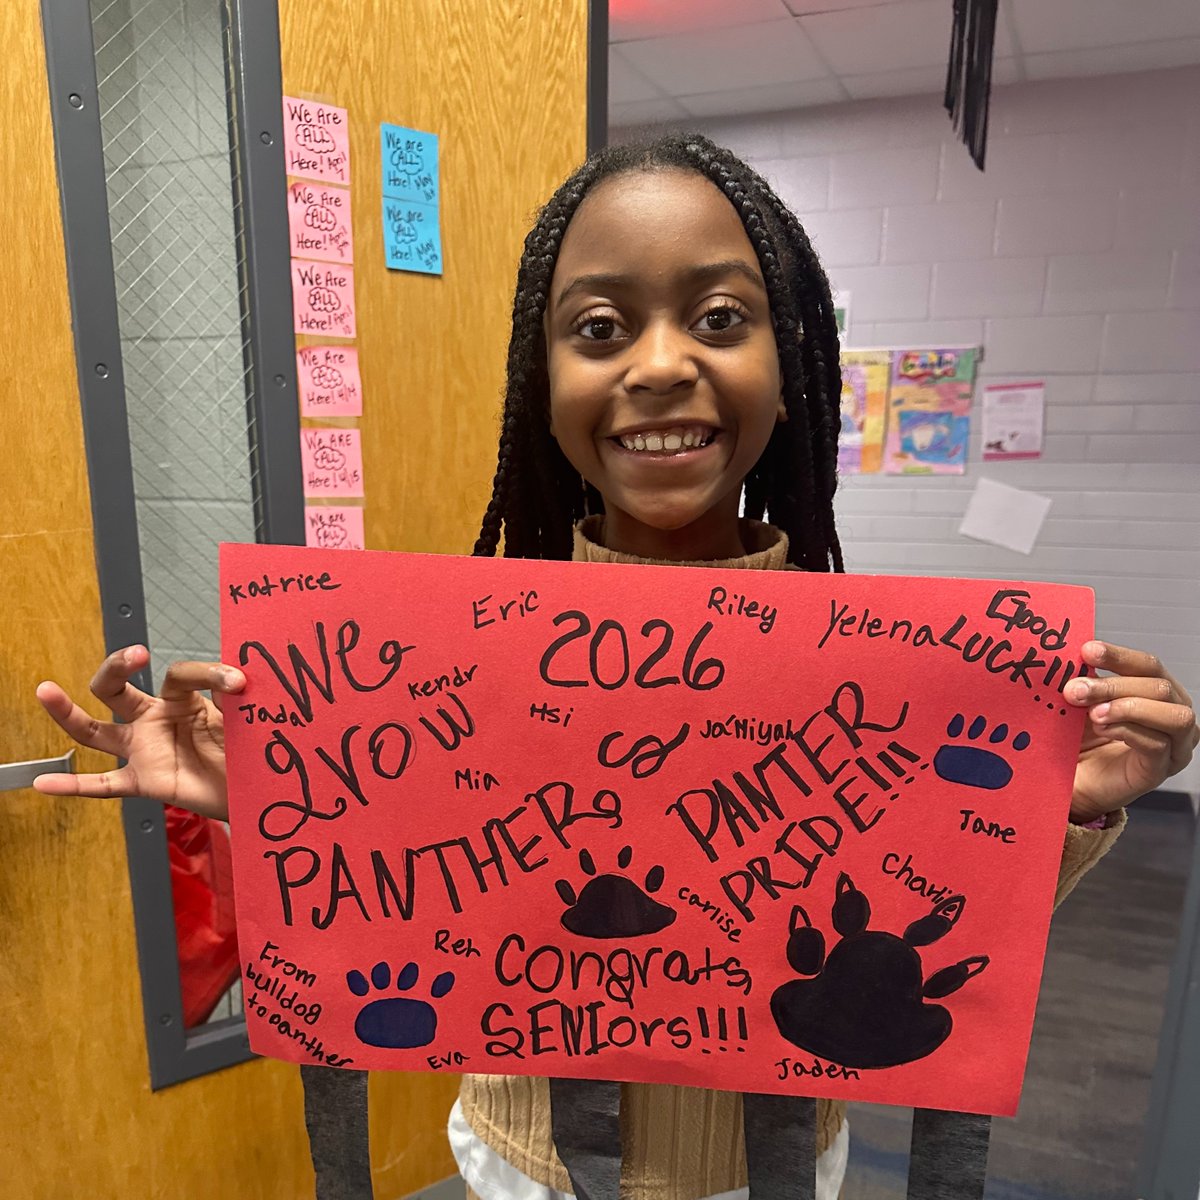 We Are
ALL
Here! April
7
We Are
ALL
Here! April
8
We Are
ALL
Here! April
10
We Are
ALL
Here! 4/14
We ARE
ALL
Here! 4/15
We are
ALL
We are
ALL
Here! May
We are
ALL
Here! May
5th
Katrice
Eric
2026
Riley
Yelena
Good
LUCK!!!...
We
Kendr
Jada
grow
Hsi
Ja'Miyah
Mia
PANTHER
PANTER
PRIDE!!!
Jane
Charlie
Carlise
Reh
From
bulldog
to panther
Congrats,
SENIors!!!
Eva
Jaden